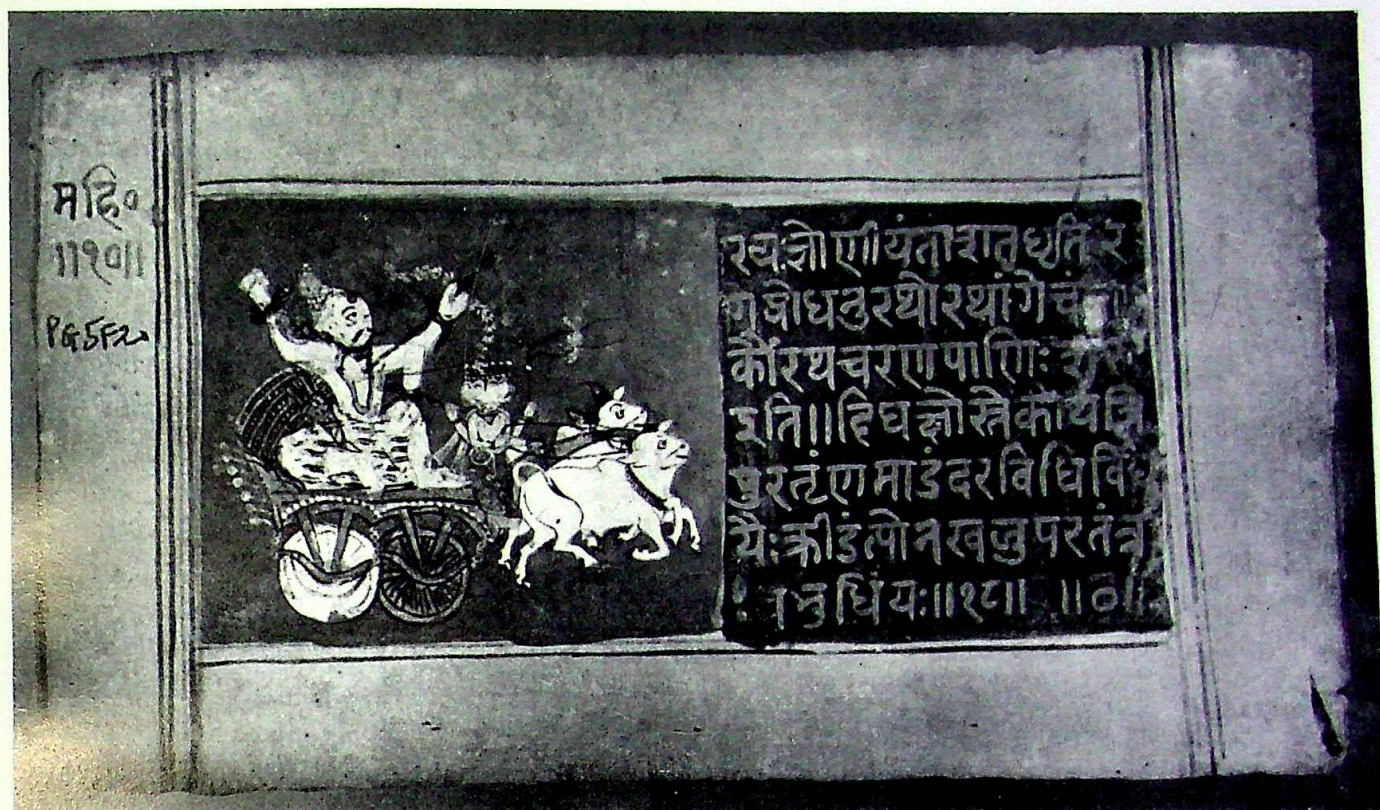 महि०
॥१०॥
PG5F2
रथःक्षोणीयंताशतधृतिर
गेंद्रोधनुरथोरथांगेचं
र्कौरथचरणपाणिः
इति॥दिधक्षोस्तेकोयंत्रि
पुरतृणमाडंबरविधिर्विधे
यैःक्रीडंत्योनखलुपरतंत्रा
प्रभुधियः॥१८॥ ॥०॥